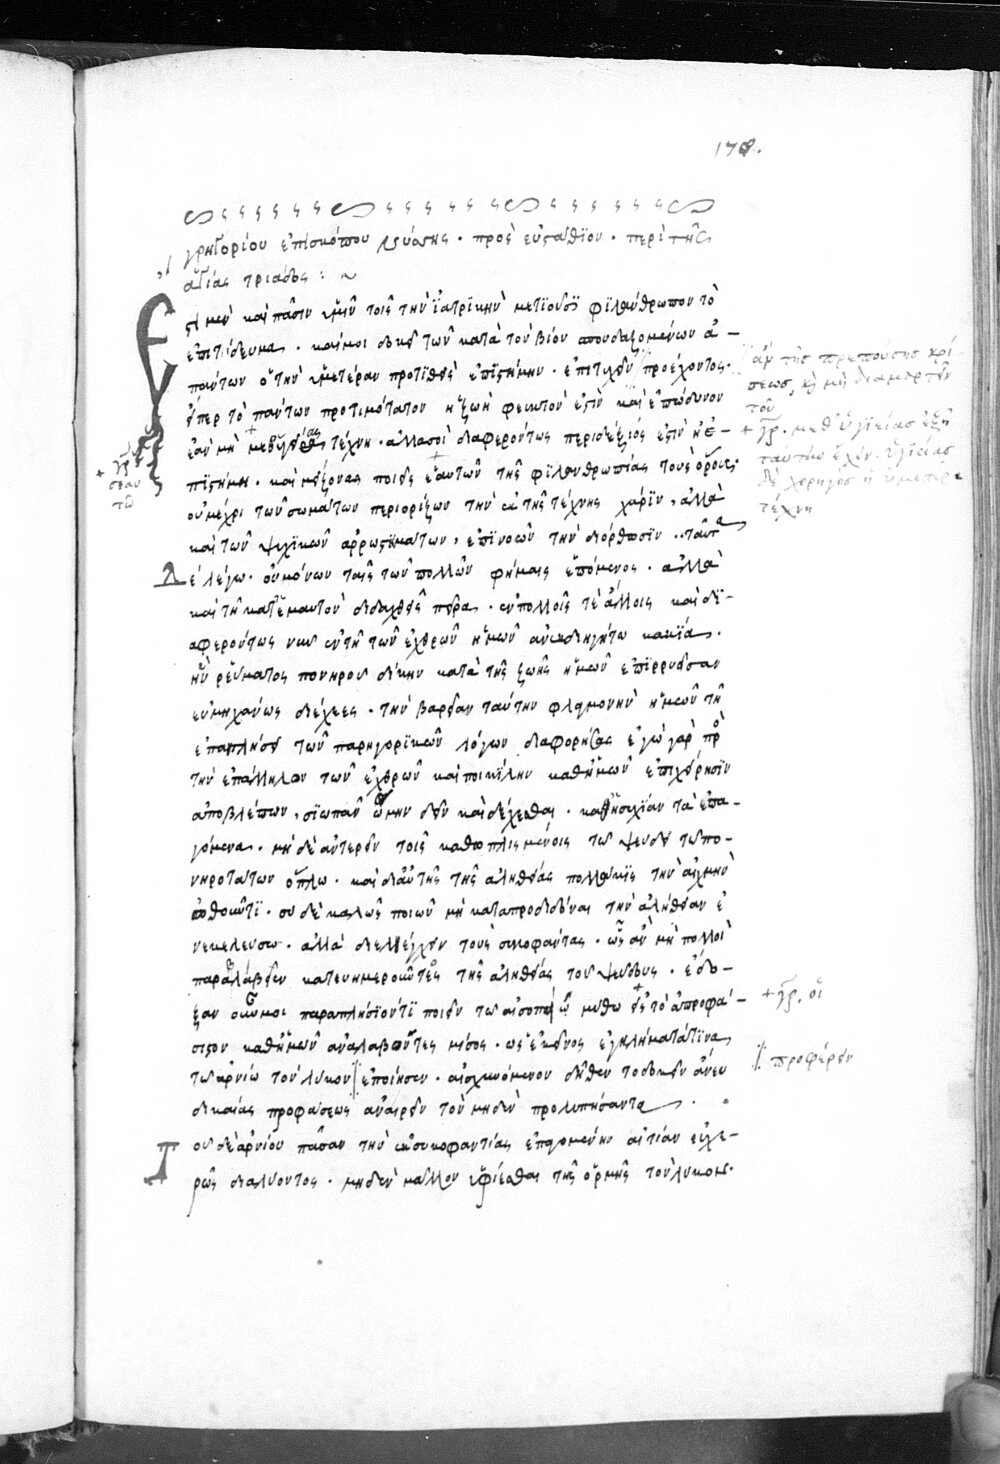 178.
γρηγορίου ἐπισκόπου νύσης · πρὸς εὐστάθϊον · περὶ τῆς
ἁγίας τριάδος : ~
Ἔστι μὲν καὶ πᾶσιν ὑμῖν τοῖς τὴν ἰατρϊκὴν μετϊοῦσϊ φϊλάνθρωπον τὸ
ἐπιτήδευμα · καί μοι δοκεῖ τῶν κατὰ τὸν βίον σπουδαζομένων ἁ–
πάντων ὁ τὴν ὑμετέραν προτϊθεὶς ἐπϊστήμην · ἐπιτυχεῖν προέχοντος·
εἴπερ τὸ πάντων προτιμότατον ἡ ζωὴ φευκτὸν ἐστὶν καὶ ἐπώδυνον
ἐὰν μὴ μεθ' ὑγείας τέχνη · ἀλλὰ σοὶ διαφερόντως περιδέξιός ἐστιν ἡ ἐ–
πϊστήμη · καὶ μείζονας ποιεῖς ἑαυτῶν τῆς φϊλανθρωπίας τοὺς ὅρους·
οὐ μέχρι τῶν σωμάτων περιορίζων τὴν ἐκ τῆς τέχνης χάρϊν, ἀλλὰ
καὶ τῶν ψυχϊκῶν ἀρρωστημάτων, ἐπϊνοῶν τὴν διόρθωσϊν .. ταῦτα
δὲ λέγω · οὐ μόνον ταῖς τῶν πολλῶν φήμαις ἑπόμενος · ἀλλὰ
καὶ τῇ κατ' ἐμαυτὸν διδαχθεὶς πείρα · ἐν πολλοῖς τὲ ἄλλοις καὶ δϊ–
αφερόντως νῦν ἐν τῇ τῶν ἐχθρῶν ἡμῶν ἀνεκδιηγήτω κακϊά ·
ἣν ῥεύματος πονηροῦ δίκην κατὰ τῆς ζωῆς ἡμῶν ἐπϊρρυεῖσαν
εὐμηχάνως διέχεες · τὴν βαρεῖαν ταύτην φλεγμονὴν ἡμῶν τῇ
ἐπαντλήσει τῶν παρηγορϊκῶν λόγων διαφορήσας ἐγὼ γὰρ πρὸς
τὴν ἐπάλληλον τῶν ἐχθρῶν καὶ ποικϊλην καθ' ἡμῶν ἐπιχείρησϊν
ἀποβλέπων, σϊωπᾶν ᾤμην δεῖν καὶ δέχεσθαι · καθ' ἡσυχϊαν τὰ ἐπα–
γόμενα · μὴ δὲ ἀντερεῖν τοῖς καθωπλισμένοις τῶ ψεύδει τῶ πο–
νηροτάτων ὅπλω · καὶ δι' αὐτῆς τῆς ἀληθείας πολλάκϊς τὴν αἰχμὴν
ὠθοῦντϊ · σὺ δὲ καλῶς ποιῶν μὴ καταπροδιδόναι τὴν ἀλήθειαν ἐ
νεκελεύσω · ἀλλὰ διελέγχειν τοὺς συκοφάντας · ὡς ἂν μὴ πολλοὶ
παραβλάβειεν κατευημεροῦντος τῆς ἀληθείας τοῦ ψεύδους · ἔδο–
ξαν οὖν μοι παραπλησϊόν τϊ ποιεῖν τῶ αἰσωπείῳ μύθω εἰς τὸ ἀπροφά–
σιστον καθ' ἡμῶν ἀναλαβόντες μῖσος · ὡς ἐκεῖνος ἐγκλήματά τϊνα
τῶ ἀρνίω τὸν λύκον ἐποίησεν · αἰσχυνόμενον δῆθεν τὸ δοκεῖν ἄνευ
δικαίας προφάσεως ἀναιρεῖν τὸν μηδὲν προλυπήσαντα ·
Τοῦ δὲ ἀρνίου πᾶσαν τὴν ἐκ συκοφαντίας ἐπαγομένην αἰτίαν εὐχε–
ρῶς διαλύοντος · μηδὲν μᾶλλον ὑφίεσθαι τῆς ὁρμῆς τὸν λύκον·
ἂν τῆς πρεπούσης κρί
σεως, καὶ μὴ διαμαρτεῖν
τοῦ
+ γρ. μεθ' ὑγιείας ἐξῆ
ταύτην ἔχειν. ὑγιείας
δὲ χορηγὸς ἡ ὑμετέρα
τέχνη
+ γρ.
+ γρ. οἱ
προφέρειν